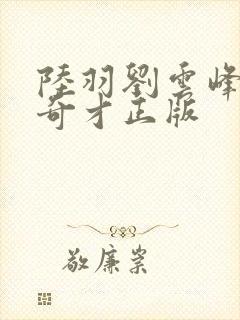 陸羽劉雲峰
奇才正版
敬廉崇